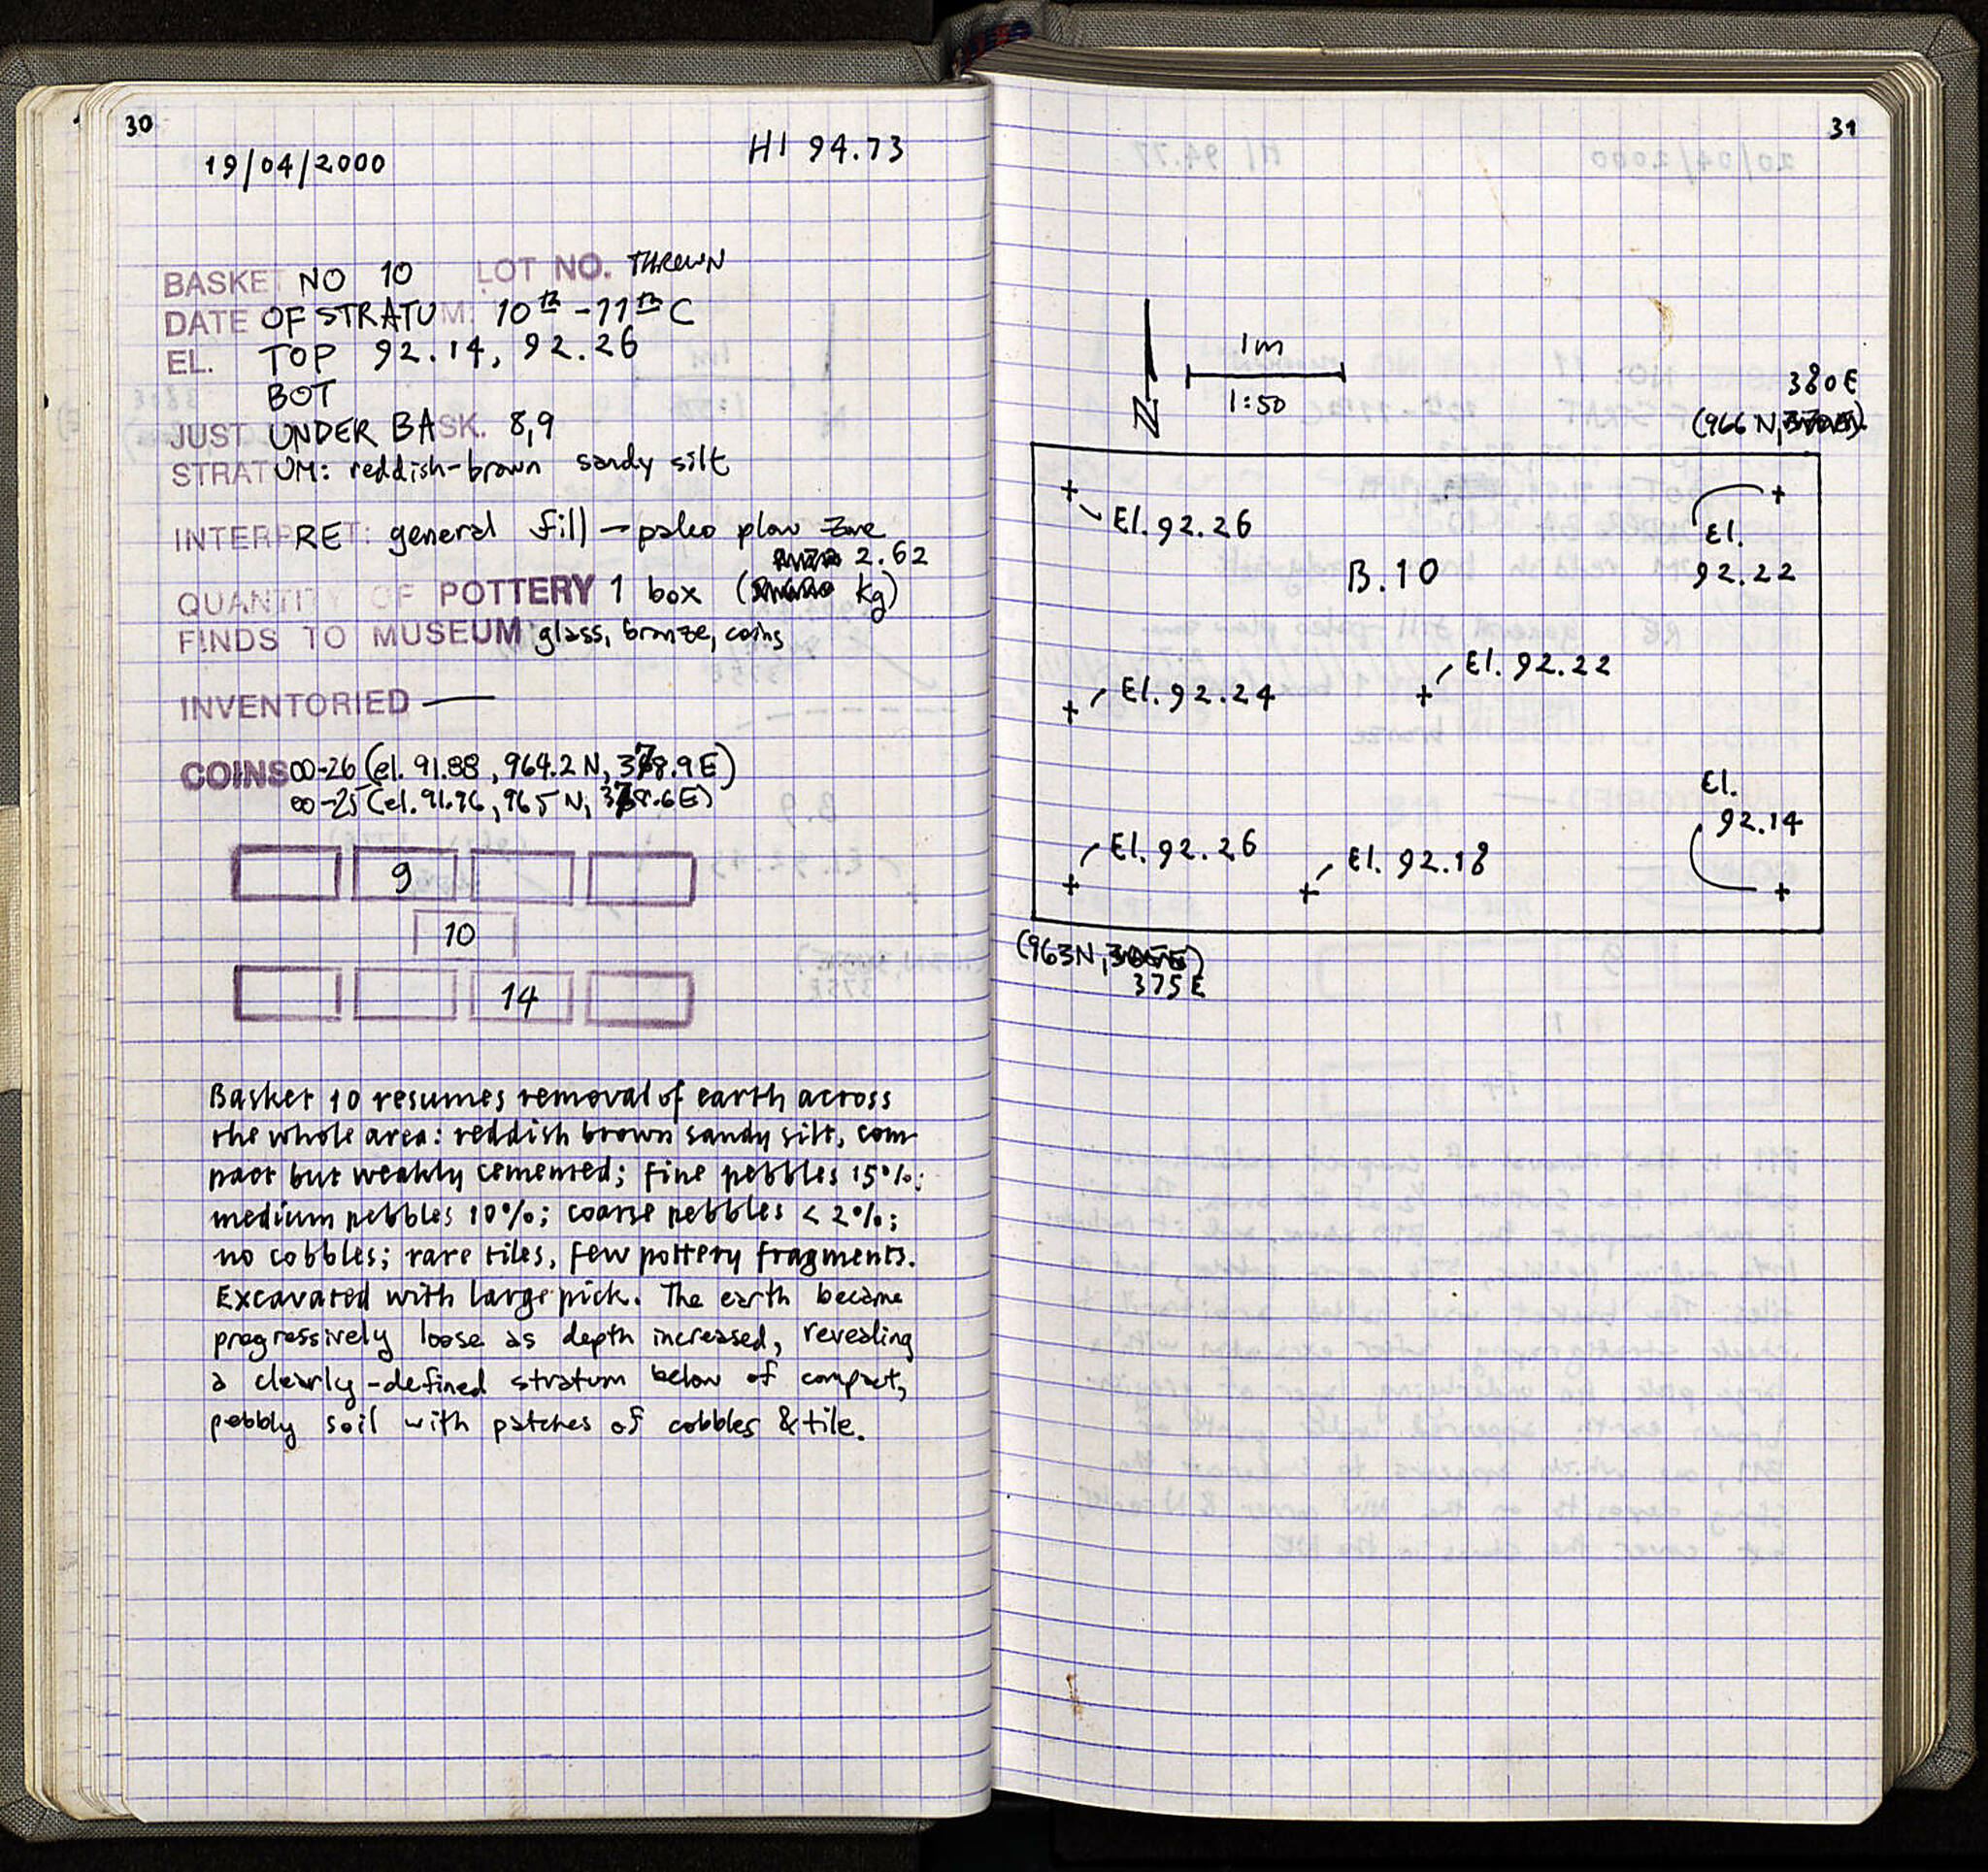 30
19/04/2000
HI 94.73
BASKET NO 10 LOT NO. THROWN
DATE OF STRATUM: 10th - 11th C
EL. TOP 92.14, 92.26
BOT
JUST UNDER BASK. 8,9
STRATUM: reddish-brown sandy silt
INTERPRET: general fill - paleo plow zone
2.62
QUANTITY OF POTTERY 1 box ( kg)
FINDS TO MUSEUM glass, bronze, coins
INVENTORIED —
COINS 00-26 (el. 91.88, 964.2 N, 378.9 E)
00-25 (el. 91.96, 965 N, 378.6 E)
9
10
14
Basket 10 resumes removal of earth across
the whole area: reddish brown sandy silt, com
pact but weakly cemented; fine pebbles 15%;
medium pebbles 10%; coarse pebbles < 2%;
no cobbles; rare tiles, few pottery fragments.
Excavated with large pick. The earth became
progressively loose as depth increased, revealing
a clearly-defined stratum below of compact,
pebbly soil with patches of cobbles & tile.
31
N
1m
1:50
380E
(966 N, )
El. 92.26
El.
92.22
B.10
El. 92.24
El. 92.22
El.
92.14
El. 92.26
El. 92.18
(963N, )
375E